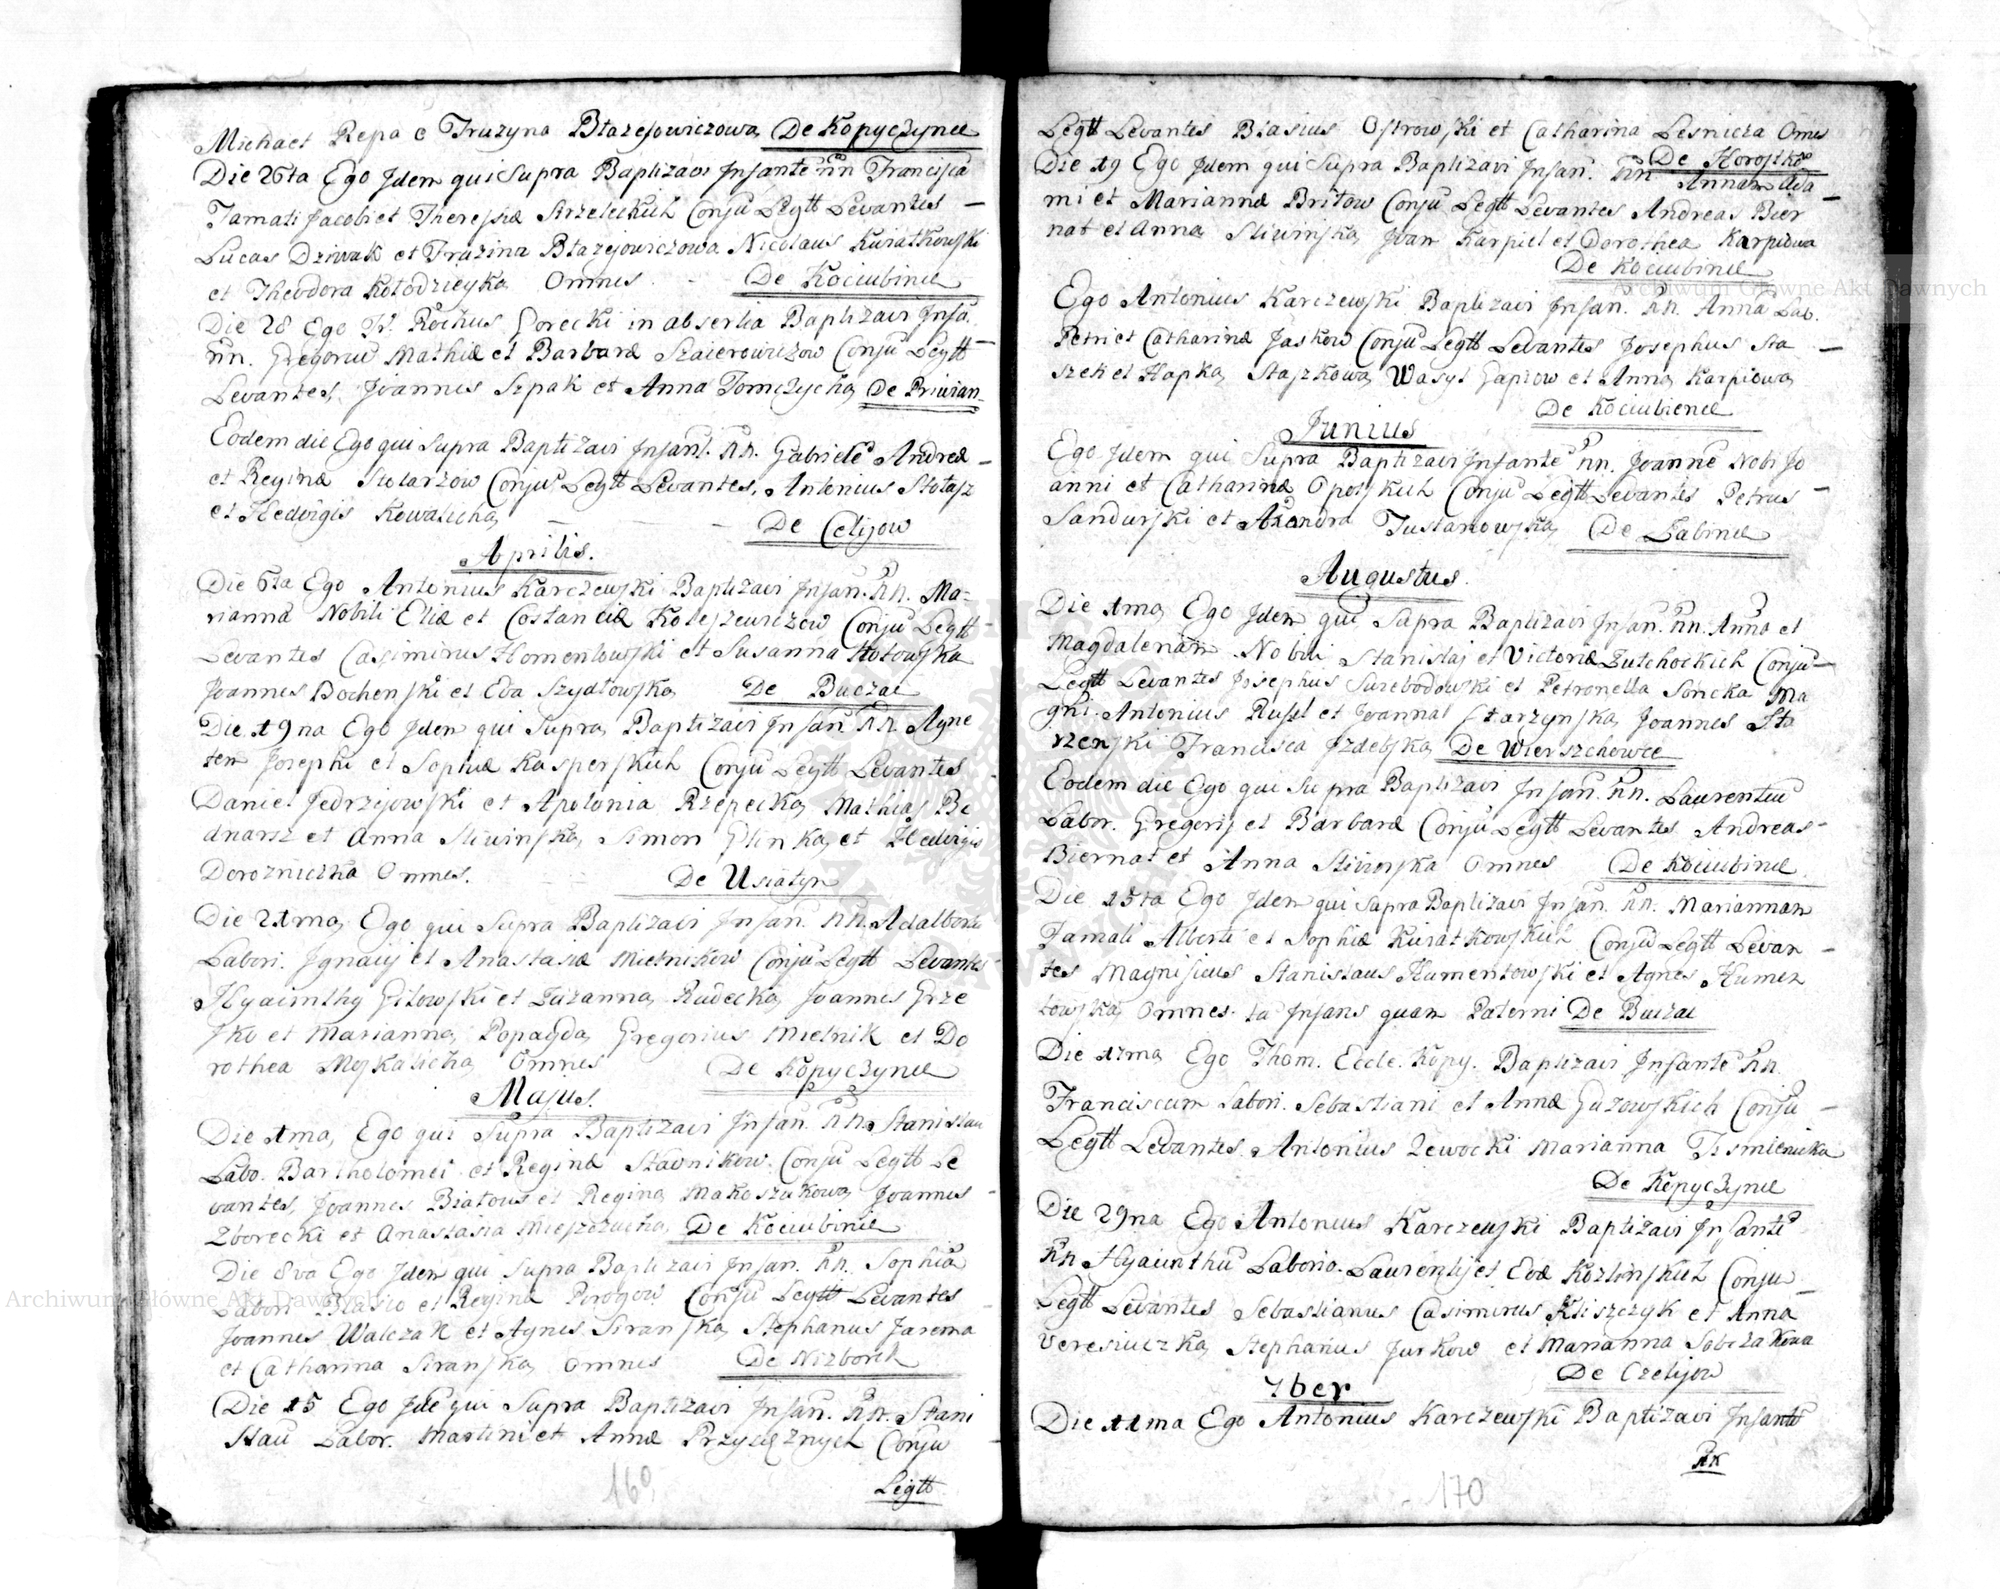 Michael Repa e Fruzyna Błazejowiczowa De Kopyczynce
Die 26ta Ego Idem qui Supra Baptizavi Infantē nn Francisca
Famati Jacobi et Theresiæ Strzeleckich Conju Legtt Levantes
Lucas Dziwak et Fruzina Błazejowiczowa Nicolaus Kwiatkowski
et Theodora Kołodzieyka Omnes De Kociubince
Die 28 Ego Fr. Rochus Gorecki in absetia Baptizavi Infa.
nn. Gregoriū Mathiæ et Barbaræ Conju Legtt
Levantes, Joannes Szpak et Anna Tomczycha
Eodem die Ego qui Supra Baptizavi Infant. nn. Gabrielē Andreæ
et Reginæ Stolarzow Conju Legtt Levantes, Antonius Stolasz
et Hedvigis Kowalicha De Celijow
Aprilis.
Die 6ta Ego Antonius Karczewski Baptizavi Infan. nn. Ma-
rianna Nobili Eliæ et Costanciæ Conju Legtt
Levantes Casimirus Homentowski et Susanna
Joannes Bochenski et Eva Szydłowska De Buczac
Die 19na Ego Idem qui Supra Baptizavi Infan nn Agne
tem Josephi et Sophiæ Kasperskich Conju Legtt Levantes
Daniel Jedrzejowski et Apolonia Rzepecka, Mathias Be
dnarsz et Anna Sliwinska, Simon Glinka, et Hedvigis
Dorozniczka Omnes. De Usiatyn
Die 21ma Ego qui Supra Baptizavi Infan. nn. Adalbertū
Labori. Ignacij et Anastasiæ Mielnikow Conju Legtt Levantes
Hyacinthy Gilowski et Zuzanna Rudecka, Joannes Grze
sko et Marianna Popayda Gregorius Mielnik et Do
rothea Moskalicha Omnes De Kopyczynce
Majus.
Die 1ma, Ego qui Supra Baptizavi Infan. nn. Stanislau
Labo. Bartholomei et Reginæ Stavnikow. Conju Legtt Le
vantes, Joannes Białous et Regina Makoszukowa Joannes
Zborecki et Anastasia De Kociubince
Die 8va Ego Idem qui Supra Baptizavi Infan. nn. Sophia
Labori Blasio et Regina Pirogow Conju Legtt Levantes
Joannes Walczak et Agnes Siranska, Stephanus Jarema
et Catharina Siranska Omnes De Nizborek
Die 15 Ego Idē qui Supra Baptizavi Infan. nn. Stani
slaū Labor. Martini et Annæ Przysięznych Conju
Legtt
169
Legtt Levantes Blasius Ostrowski et Catharina Lesnicza Omes
De Horostko
Die 19 Ego Idem qui Supra Baptizavi Infan. nn Annam Ada
mi et Mariannæ Britow Conju Legtt Levantes Andreas Bier
nat et Anna Sliwinska, Joan Karpiel et Dorothea Karpiowa
De Kociubince
Ego Antonius Karczewski Baptizavi Infan. nn. Anna Lab.
Petri et Catharinæ Jaskow Conju Legtt Levantes Josephus Sta
szek et Hapka Staszkowa, Wasyl Gapiow et Anna Karpiowa
De Kociubience
Junius
Ego Idem qui Supra Baptizavi Infantē nn. Joannē Nobi Jo
anni et Catharinæ Opolskich Conju Legtt Levantes Petrus
Sandurski et Tustanowska De Zabince
Augustus.
Die 1ma, Ego Idem qui Supra Baptizavi Infan. nn. Anna et
Magdalenam Nobili Stanislaj et Victoriæ Conju
Legtt Levantes Josephus et Petronella Soncka Ma
gni. Antonius Russl et Joannal Starzynska, Joannes Sta
rzenski Francisca Izdebska, De Wierszchowce
Eodem die Ego qui Supra Baptizavi Infan. nn. Laurentiū
Labor. Gregorij et Barbaræ Conju Legtt Levantes Andreas
Biernat et Anna Omnes De Kociubince
Die 15ta Ego Idem qui Supra Baptizavi Infan. nn. Mariannam
Famali Alberti et Sophiæ Kwiatkowskich Conju Legtt Levan
tes Magnificus Stanislaus Humentowski et Agnes Humen
towska Omnes. ta Infans quam Paterni De Buczac
Die 17ma, Ego Thom. Eccle. Kopy. Baptizavi Infantē nn.
Franciscum Labori. Sebastiani et Annæ Guzowskich Conju
Legtt Levantes. Antonius Zewocki Marianna
De Kopyczynce
Die 29na Ego Antonius Karczewski Baptizavi Infantē
nn Hyacinthū Laborio. Laurentij et Evæ Kozlinskich Conju
Legtt Levantes Sebastianus Casimirus Kliszczyk et Anna
Veresiuczka, Stephanus Jurkow et Marianna Sobczakowa
De Czelijow
7ber
Die 11ma Ego Antonius Karczewski Baptizavi Infantē
nn
170
Archiwum Główne Akt Dawnych
Archiwum Główne Akt Dawnych